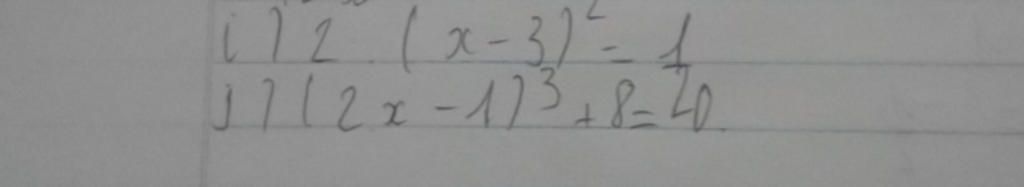 i) 2 . (x - 3)² = 1
j) (2x - 1)³ + 8 = 20